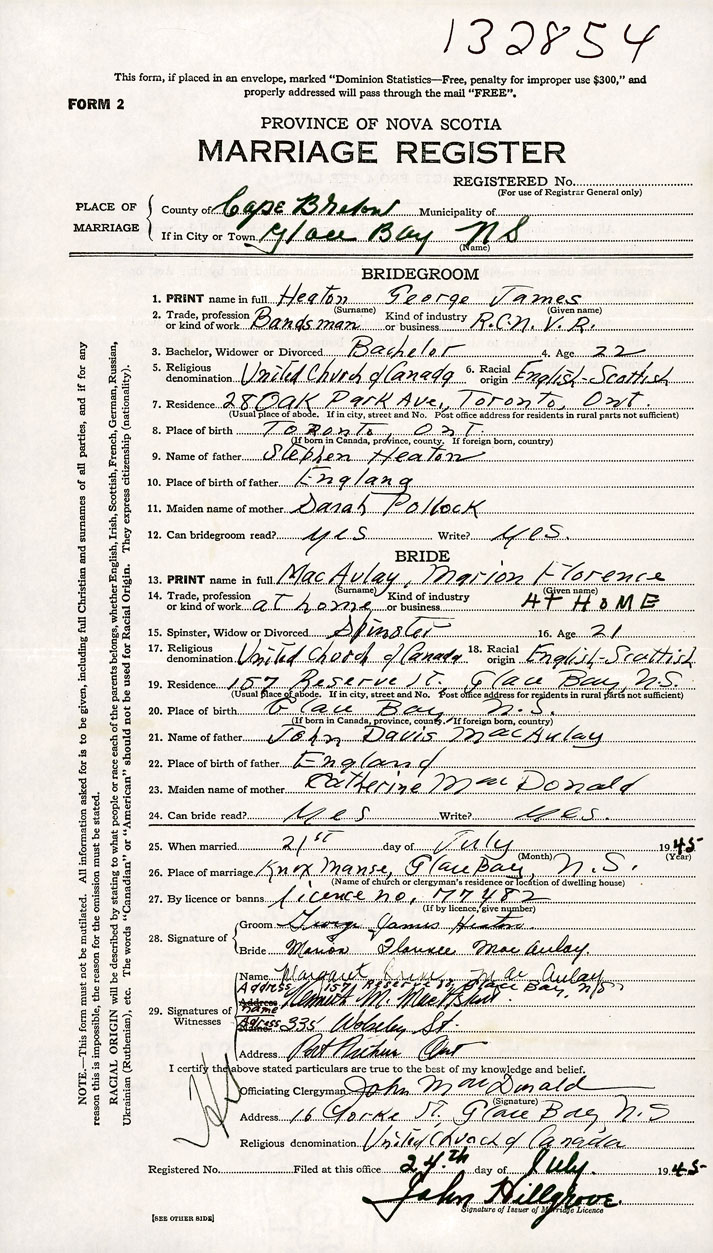 132854
This form, if placed in an envelope, marked "Dominion Statistics—Free, penalty for improper use $300," and
properly addressed will pass through the mail "FREE".
FORM 2
PROVINCE OF NOVA SCOTIA
MARRIAGE REGISTER
REGISTERED No.
(For use of Registrar General only)
PLACE OF MARRIAGE
County of Cape Breton Municipality of
If in City or Town Glace Bay NS
(Name)
BRIDEGROOM
1. PRINT name in full Heaton George James
(Surname) (Given name)
2. Trade, profession or kind of work Bandsman Kind of industry or business R.C.N.V.R.
3. Bachelor, Widower or Divorced Bachelor 4. Age 22
5. Religious denomination United Church of Canada 6. Racial origin English-Scottish
7. Residence 28 Oak Park Ave, Toronto, Ont.
(Usual place of abode. If in city, street and No. Post office address for residents in rural parts not sufficient)
8. Place of birth Toronto, Ont.
(If born in Canada, province, county. If foreign born, country)
9. Name of father Stephen Heaton
10. Place of birth of father England
11. Maiden name of mother Sarah Pollock
12. Can bridegroom read? yes Write? yes.
BRIDE
13. PRINT name in full MacAulay, Marion Florence
(Surname) (Given name)
14. Trade, profession or kind of work at home Kind of industry or business AT HOME
15. Spinster, Widow or Divorced Spinster 16. Age 21
17. Religious denomination United Church of Canada 18. Racial origin English-Scottish
19. Residence 157 Reserve St. Glace Bay, N.S.
(Usual place of abode. If in city, street and No. Post office address for residents in rural parts not sufficient)
20. Place of birth Glace Bay, N.S.
(If born in Canada, province, county. If foreign born, country)
21. Name of father John Davis MacAulay
22. Place of birth of father England
23. Maiden name of mother Catherine MacDonald
24. Can bride read? yes Write? yes.
25. When married 21st day of July 1945
(Month) (Year)
26. Place of marriage Knox Manse, Glace Bay, N.S.
(Name of church or clergyman's residence or location of dwelling house)
27. By licence or banns licence no. 77482
(If by licence, give number)
28. Signature of
Groom George James Heaton
Bride Marion Florence MacAulay.
29. Signatures of Witnesses
Name Margaret MacAulay
Address 157 Reserve St, Glace Bay, NS
Name Kenneth M.
Address 335 Wolseley St.
Address Port Arthur Ont
I certify the above stated particulars are true to the best of my knowledge and belief.
Officiating Clergyman John MacDonald
(Signature)
Address 16 Yorke St, Glace Bay N.S
Religious denomination United Church of Canada
Registered No. Filed at this office 24th day of July. 1945
John Hillgrove.
Signature of Issuer of Marriage Licence
[SEE OTHER SIDE]
NOTE.—This form must not be mutilated. All information asked for is to be given, including full Christian and surnames of all parties, and if for any
reason this is impossible, the reason for the omission must be stated.
RACIAL ORIGIN will be described by stating to what people or race each of the parents belongs, whether English, Irish, Scottish, French, German, Russian,
Ukrainian (Ruthenian), etc. The words "Canadian" or "American" should not be used for Racial Origin. They express citizenship (nationality).